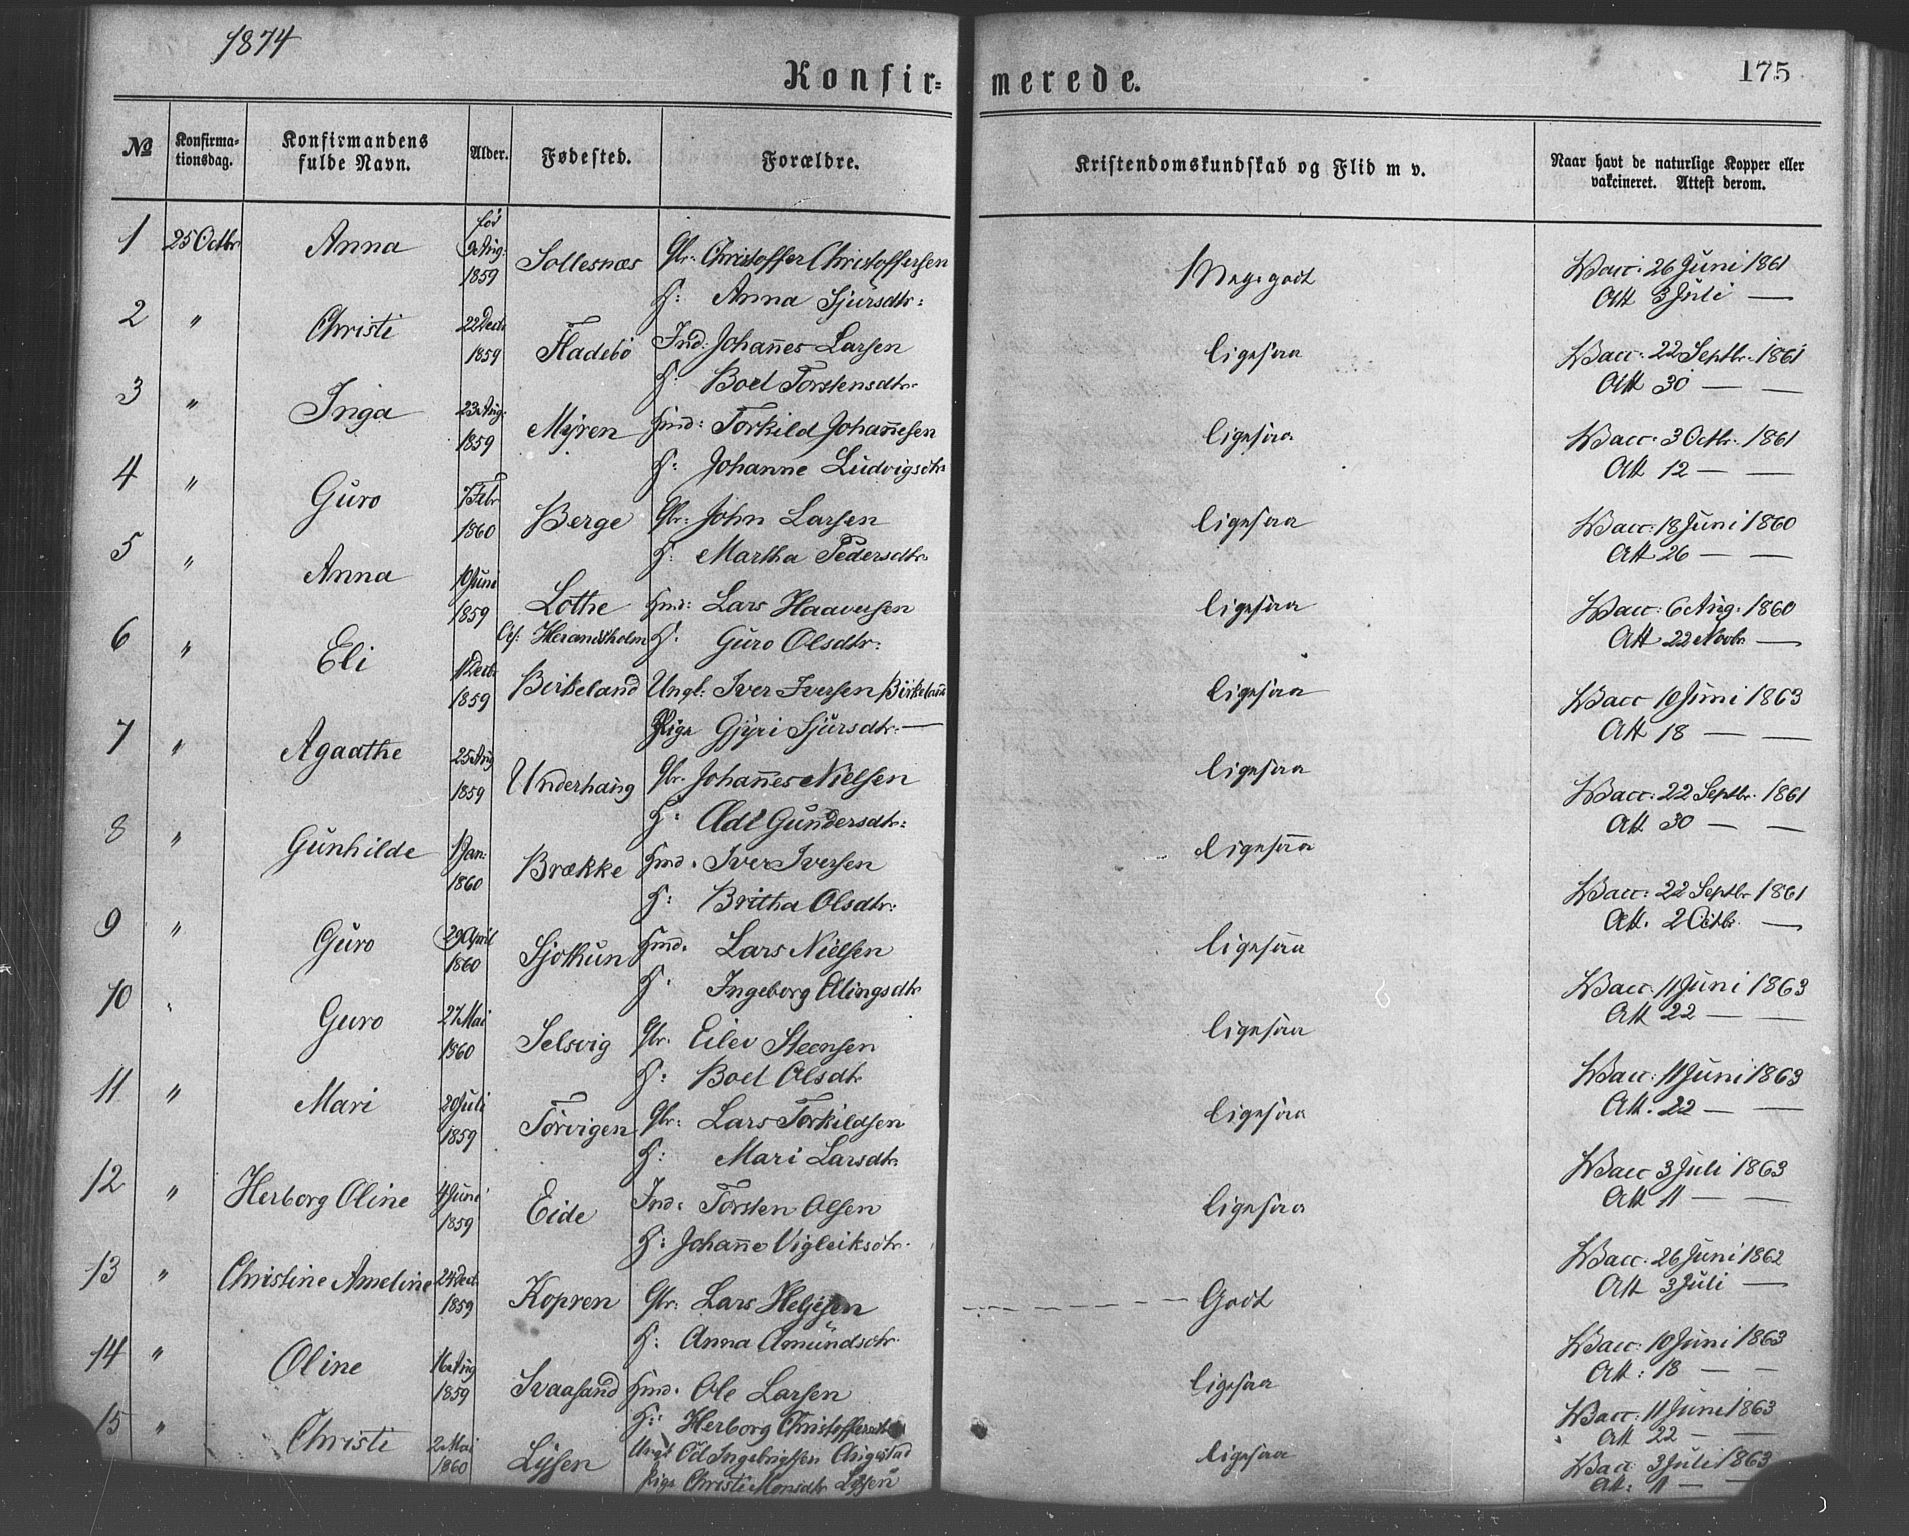 1874
175
Konfir= merede.
№ Konfirma-tionsdag. Konfirmandens fulde Navn. Alder. Fødested. Forældre. Kristendomskundskab og Flid m v. Naar havt de naturlige Kopper eller vakcineret. Attest derom.
1 25 Octbr Anna fød 9 Aug: 1859 Sollesnæs Gbr: Christoffer Christoffersen Meget godt Vacc: 26 Juni 1861
H: Anna Sjursdtr: Att 3 Juli —
2 " Christi 22 Decb 1859 Fladebö Ind: Johannes Larsen ligesaa Vacc: 22 Septbr. 1861
H: Boel Torstensdtr. Att 30 — —
3 " Inga 23 Aug: 1859 Myren Hmd: Torkild Johannesen ligesaa Vacc. 3 Octbr. 1861
H: Johanne Ludvigsdtr Att 12 — —
4 " Guro 7 Febr 1860 Berge Gbr: John Larsen ligesaa Vacc: 18 Juni 1860
H: Martha Pedersdtr. Att 26 — —
5 " Anna 10 Juni 1859 Lothe Hmd: Lars Haaversen ligesaa Vacc: 6 Aug. 1860
Herandsholm H. Guro Olsdtr: Att 22 Novbr —
6 " Eli Decb. 1859 Birkeland Ungk: Iver Iversen Birkeland ligesaa Vacc 10 Juni 1863
Pige Gjyri Sjursdtr. — Att 18 — —
7 " Agaathe 25 Aug 1859 Underhaug Gbr. Johannes Nielsen ligesaa Vacc: 22 Septbr. 1861
H: Adl Gundersdtr: Att 30 — —
8 " Gunhilde 1 Jan: 1860 Brække Hmd. Iver Iversen ligesaa Vacc: 22 Septbr 1861
H: Britha Olsdtr: Att. 2 Octbr. —
9 " Guro 29 April 1860 Hmd. Lars Nielsen ligesaa Vacc. 11 Juni 1863
H. Ingeborg Elingsdtr Att 22 — —
10 " Guro 27 Mai 1860 Selsvig Gbr. Eilev Steensen ligesaa Vacc: 11 Juni 1863
H: Boel Olsdtr Att. 22 — —
11 " Mari 20 Juli 1859 Törvigen Gbr: Lars Torkildsen ligesaa Vacc 3 Juli 1863
H: Mari Larsdtr. Att 11 — —
12 " Herborg Oline 4 Juni 1859 Eide Ind: Torsten Olsen ligesaa Vacc. 26 Juni 1862
H: Johanne Vigleiksdtr. Att 3 Juli —
13 " Christine Ameline 24 Decb. 1859 Kopren Gbr: Lars Heljesen Godt Vacc: 10 Juni 1863
H: Anna Amundsdtr. Att: 18 — —
14 " Oline 16 Aug 1859 Svaasand Hmd. Ole Larsen ligesaa Vacc: 11 Juni 1863
H: Herborg Christoffersdtr Att 22 — —
15 " Christi 2 Mai 1860 Lysen Ungk Od Ingebrigtsen ligesaa Vacc 3 Juli 1863
Pige Christi Monsdtr Lysen Att: 11 — —